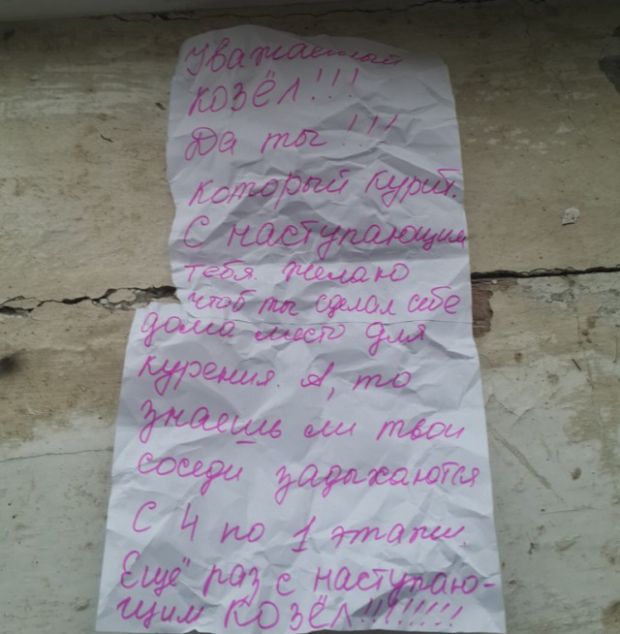 Уважаемый
козёл!!!
Да ты!!!
который курит.
С наступающим
тебя. желаю
чтоб ты сделал себе
дома место для
курения. А, то
знаешь ли твои
соседи задыхаются
с 4 по 1 этажи.
Ещё раз с наступаю-
щим козёл!!!!!!!!